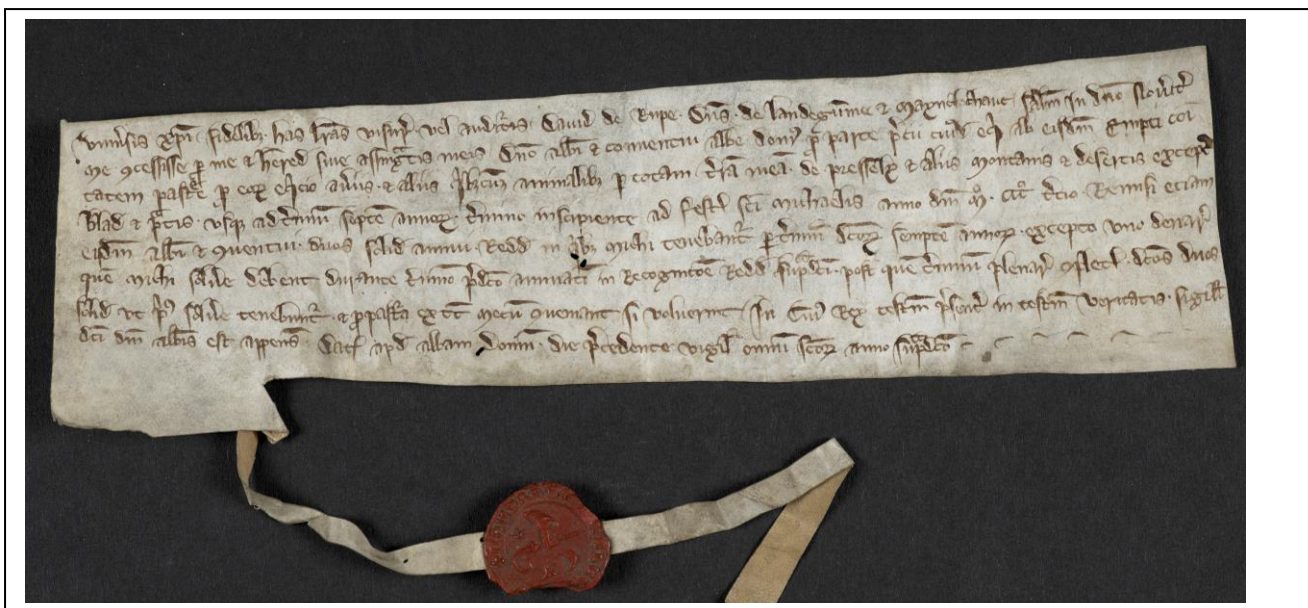 Univ̄sis xp̄i fidelib; has l̄ras visur̄ vel auditur̄ David de Rupe Dn̄s de landegūme & maynclochaut sal̄m in dn̄o Nov̄it̄
me ɔcessisse p̄ me & hered sive assingnatis meis Dn̄o abb̄i & conventui albe dom̄ p̄ parte p̄cii eq̄i ab eisdem empti coī
tatem pastur̄ p̄ eoꝝ av̄iis & aliis animalib; p totam t̄rā meā de presselẏ & aliis montanis & desertis except̄
blad & p̄tis usq; ad t̄minū septē annoꝝ t̄mino inscipiente ad festū sc̄i michaelis anno dn̄i t̄cio Remisi eciam
eisdm̄ abb̄i & ɔventui duos solid annui Redd in q̄ib; michi tenebant̄ p t̄minū dc̄oꝝ semptē annoꝝ excepto uno denar̄
quē michi solv̄e debent durante t̄mino p̄dc̄o annuatī in Recognitōē Redd sup̄dc̄i post quē t̄minū plenar̄ ɔplet̄ dc̄os duos
solid ut p̄us solv̄e tenebunt̄ & p̄ pastura ex tc̄ mecū ɔveniant si voluerint In cuī Rei testm̄ p̄sent̄ in testm̄ veritatis sigill̄
dc̄i dn̄i abb̄is est appens̄ Dat̄ apd̄ albam domū die p̄cedente vigil̄ omniū sc̄oꝝ anno sup̄dc̄o